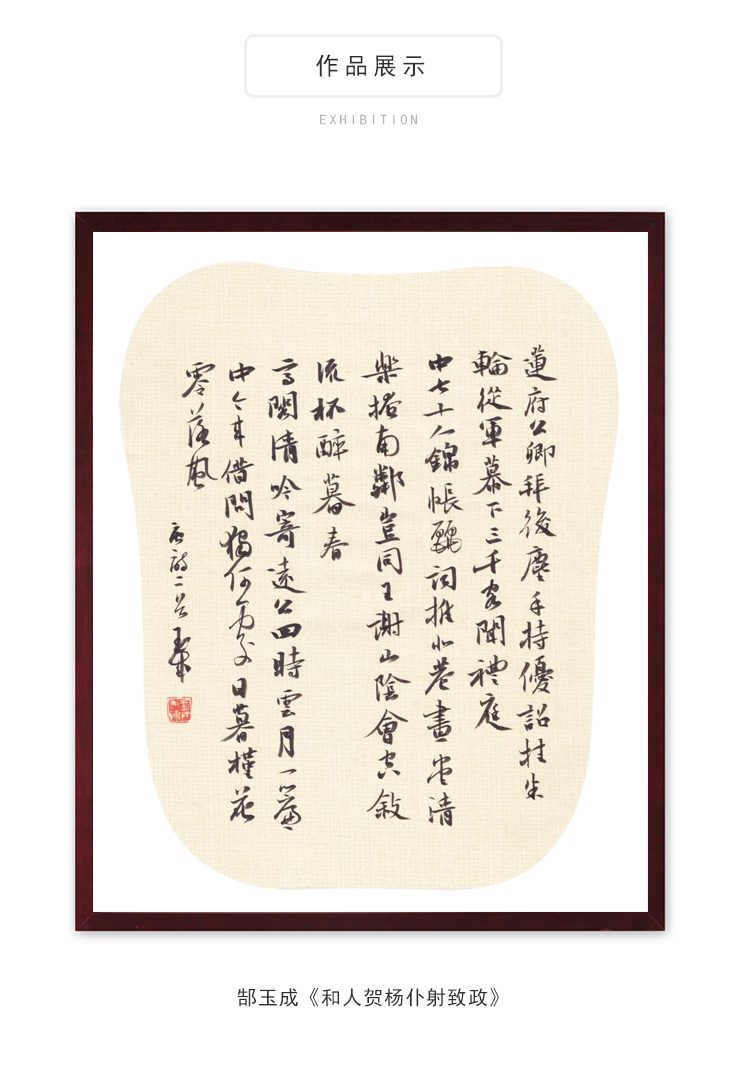 作品展示
EXHIBITION
蓮府公卿拜後塵手持優詔挂朱
輪從軍幕下三千客聞禮庭
中七十人錦帳麗詞推北巷畫堂清
樂掩南鄰豈同王謝山陰會空敘
流杯醉暮春
高閣清吟寄遠公四時雲月一篇
中今來借問獨何處日暮槿花
零落風
唐詩二首 玉成
郜玉成《和人贺杨仆射致政》